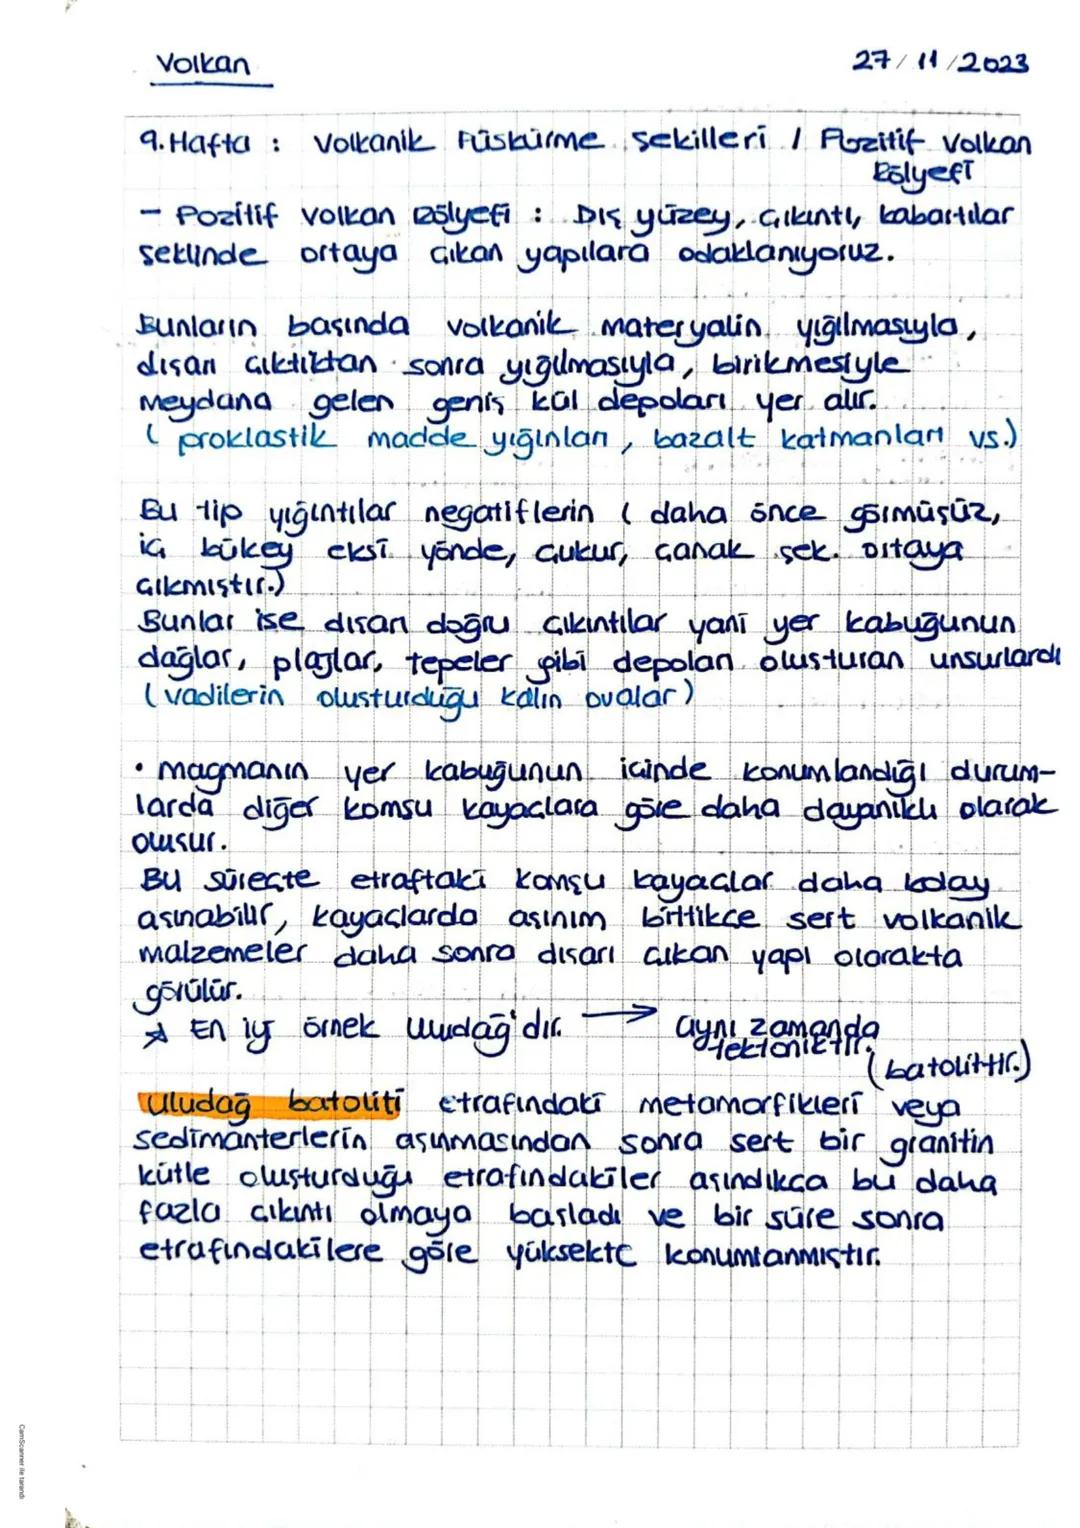 Volkan
27/11/2023
9.Hafta : Volkanik Püskürme şekilleri / Pozitif Volkan
Rölyefi
- Pozitif Volkan Rölyefi : Dış yüzey, çıkıntı, kabartılar
şeklinde ortaya çıkan yapılara odaklanıyoruz.
Bunların başında volkanik materyalin yığılmasıyla,
dışarı çıktıktan sonra yığılmasıyla, birikmesiyle
meydana gelen geniş kül depoları yer alır.
( proklastik madde yığınları, bazalt katmanları vs.)
Bu tip yığıntılar negatiflerin ( daha önce görmüşüz,
iç bükey eksi yönde, çukur, çanak şek. ortaya
çıkmıştır.)
Bunlar ise dışarı doğru çıkıntılar yani yer kabuğunun
dağlar, plajlar, tepeler gibi depoları oluşturan unsurlardı
(vadilerin oluşturduğu kalın ovalar)
• magmanın yer kabuğunun içinde konumlandığı durum-
larda diğer komşu kayaçlara göre daha dayanıklı olarak
oluşur.
Bu süreçte etraftaki komşu kayaçlar daha kolay
aşınabilir, kayaçlarda aşınım bittikçe sert volkanik
malzemeler daha sonra dışarı çıkan yapı olarakta
görülür.
☆ En iy örnek Uludağ'dır. → aynı zamanda
tektoniktir.
(batolittir.)
Uludağ batoliti etrafındaki metamorfikleri veya
sedimanterlerin aşınmasından sonra sert bir granitin
kütle oluşturduğu etrafındakiler aşındıkça bu daha
fazla çıkıntı olmaya başladı ve bir süre sonra
etrafındakilere göre yüksekte konumlanmıştır.
CamScanner ile tarandı